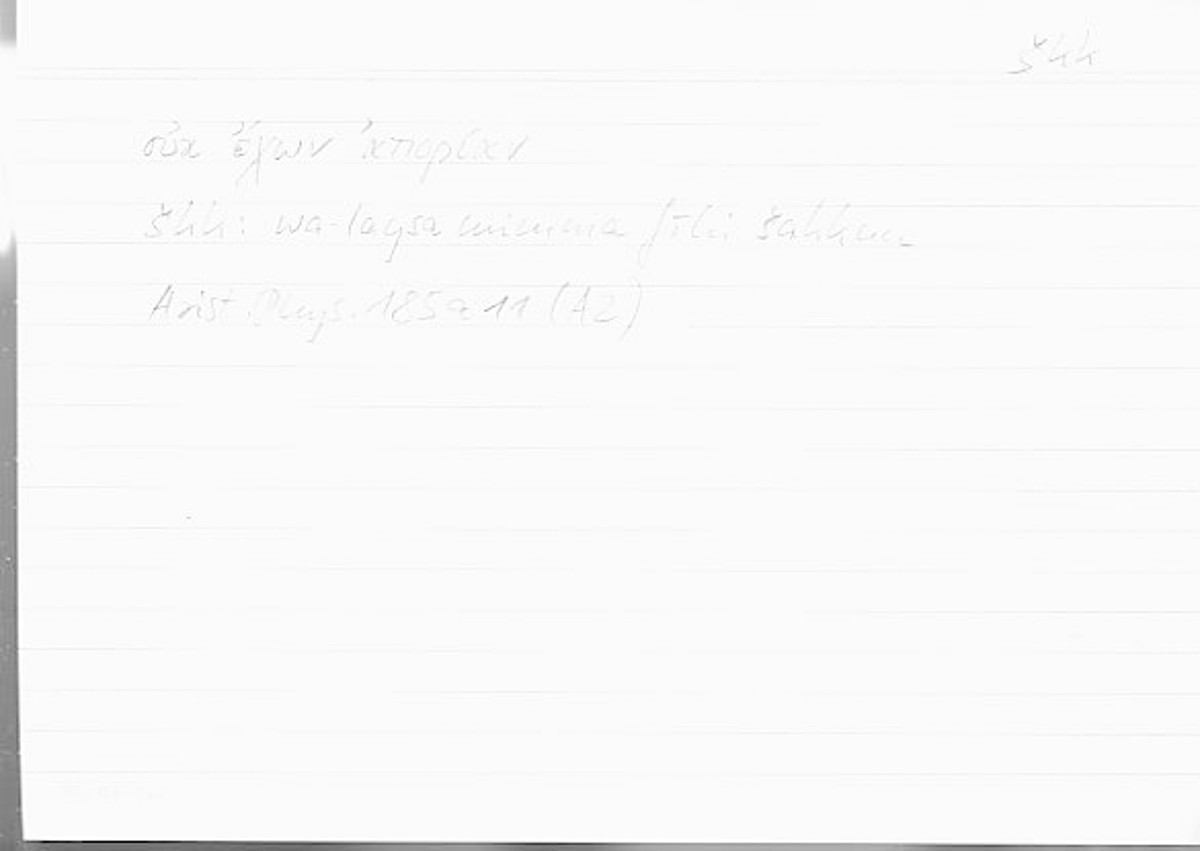 škk
οὐκ ἔχων ἀπορίαν
škk: wa-laysa mimmā fīhi šakkun
Arist. Phys. 185 a 11 (A2)